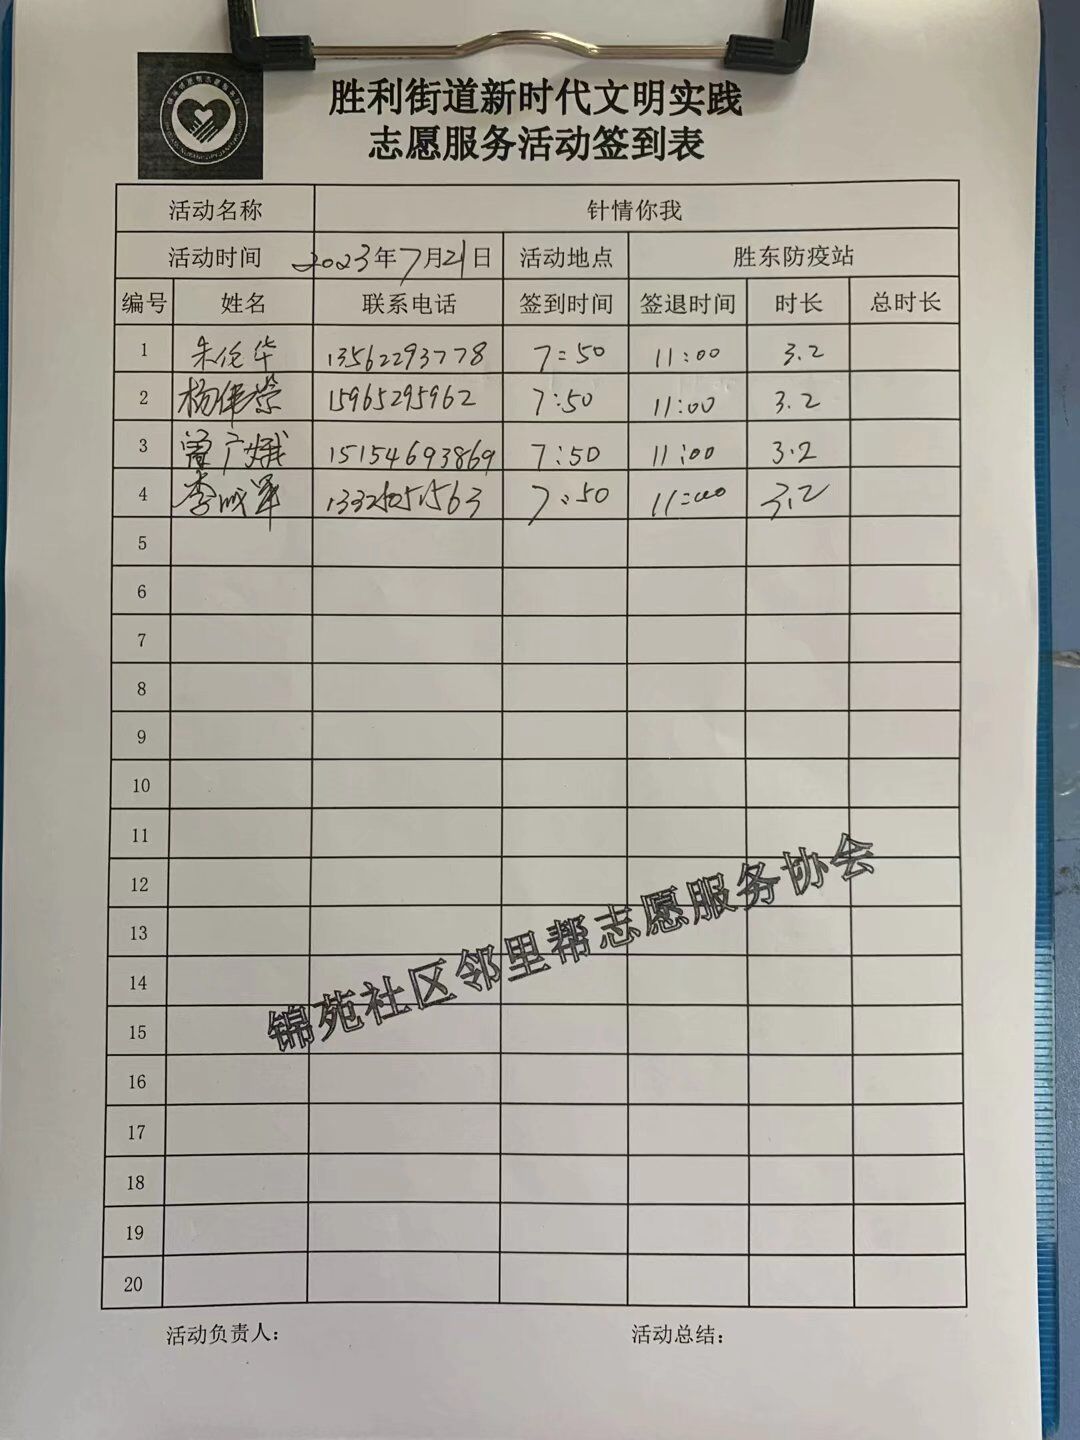 胜利街道新时代文明实践
志愿服务活动签到表
活动名称 针情你我
活动时间 2023年7月21日 活动地点 胜东防疫站
编号 姓名 联系电话 签到时间 签退时间 时长 总时长
1 朱伦华 13562293778 7:50 11:00 3.2
2 杨伟荣 15965295962 7:50 11:00 3.2
3 曾广娥 15154693869 7:50 11:00 3.2
4 李 7:50 11:00 3.2
5
6
7
8
9
10
11
12
13
14
15
16
17
18
19
20
锦苑社区邻里帮志愿服务协会
活动负责人： 活动总结：